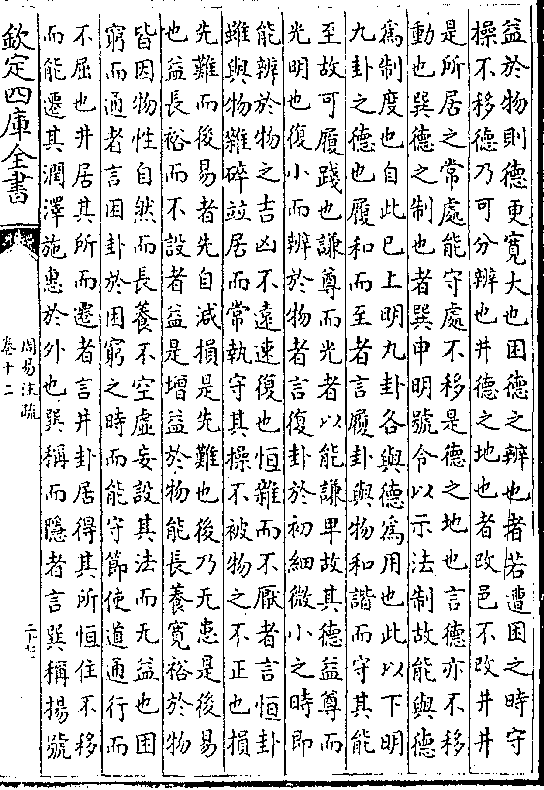 益於物則德更寬大也困德之辨也者若遭困之時守
操不移德乃可分辨也井德之地也者改邑不改井井
是所居之常處能守處不移是德之地也言德亦不移
動也巽德之制也者巽申明號令以示法制故能與德
爲制度也自此已上明九卦各與德爲用也此以下明
九卦之德也履和而至者言履卦與物和諧而守其能
至故可履踐也謙尊而光者以能謙卑故其德益尊而
光明也復小而辨於物者言復卦於初細微小之時即
能辨於物之吉凶不遠速復也恒雜而不厭者言恒卦
雖與物雜碎竝居而常執守其操不被物之不正也損
先難而後易者先自減損是先難也後乃无患是後易
也益長裕而不設者益是增益於物能長養寬裕於物
皆因物性自然而長養不空虛妄設其法而无益也困
窮而通者言困卦於困窮之時而能守節使道通行而
不屈也井居其所而遷者言井卦居得其所恒住不移
而能遷其潤澤施惠於外也巽稱而隱者言巽稱揚號
欽定四庫全書
周易注疏
卷十二
二十七